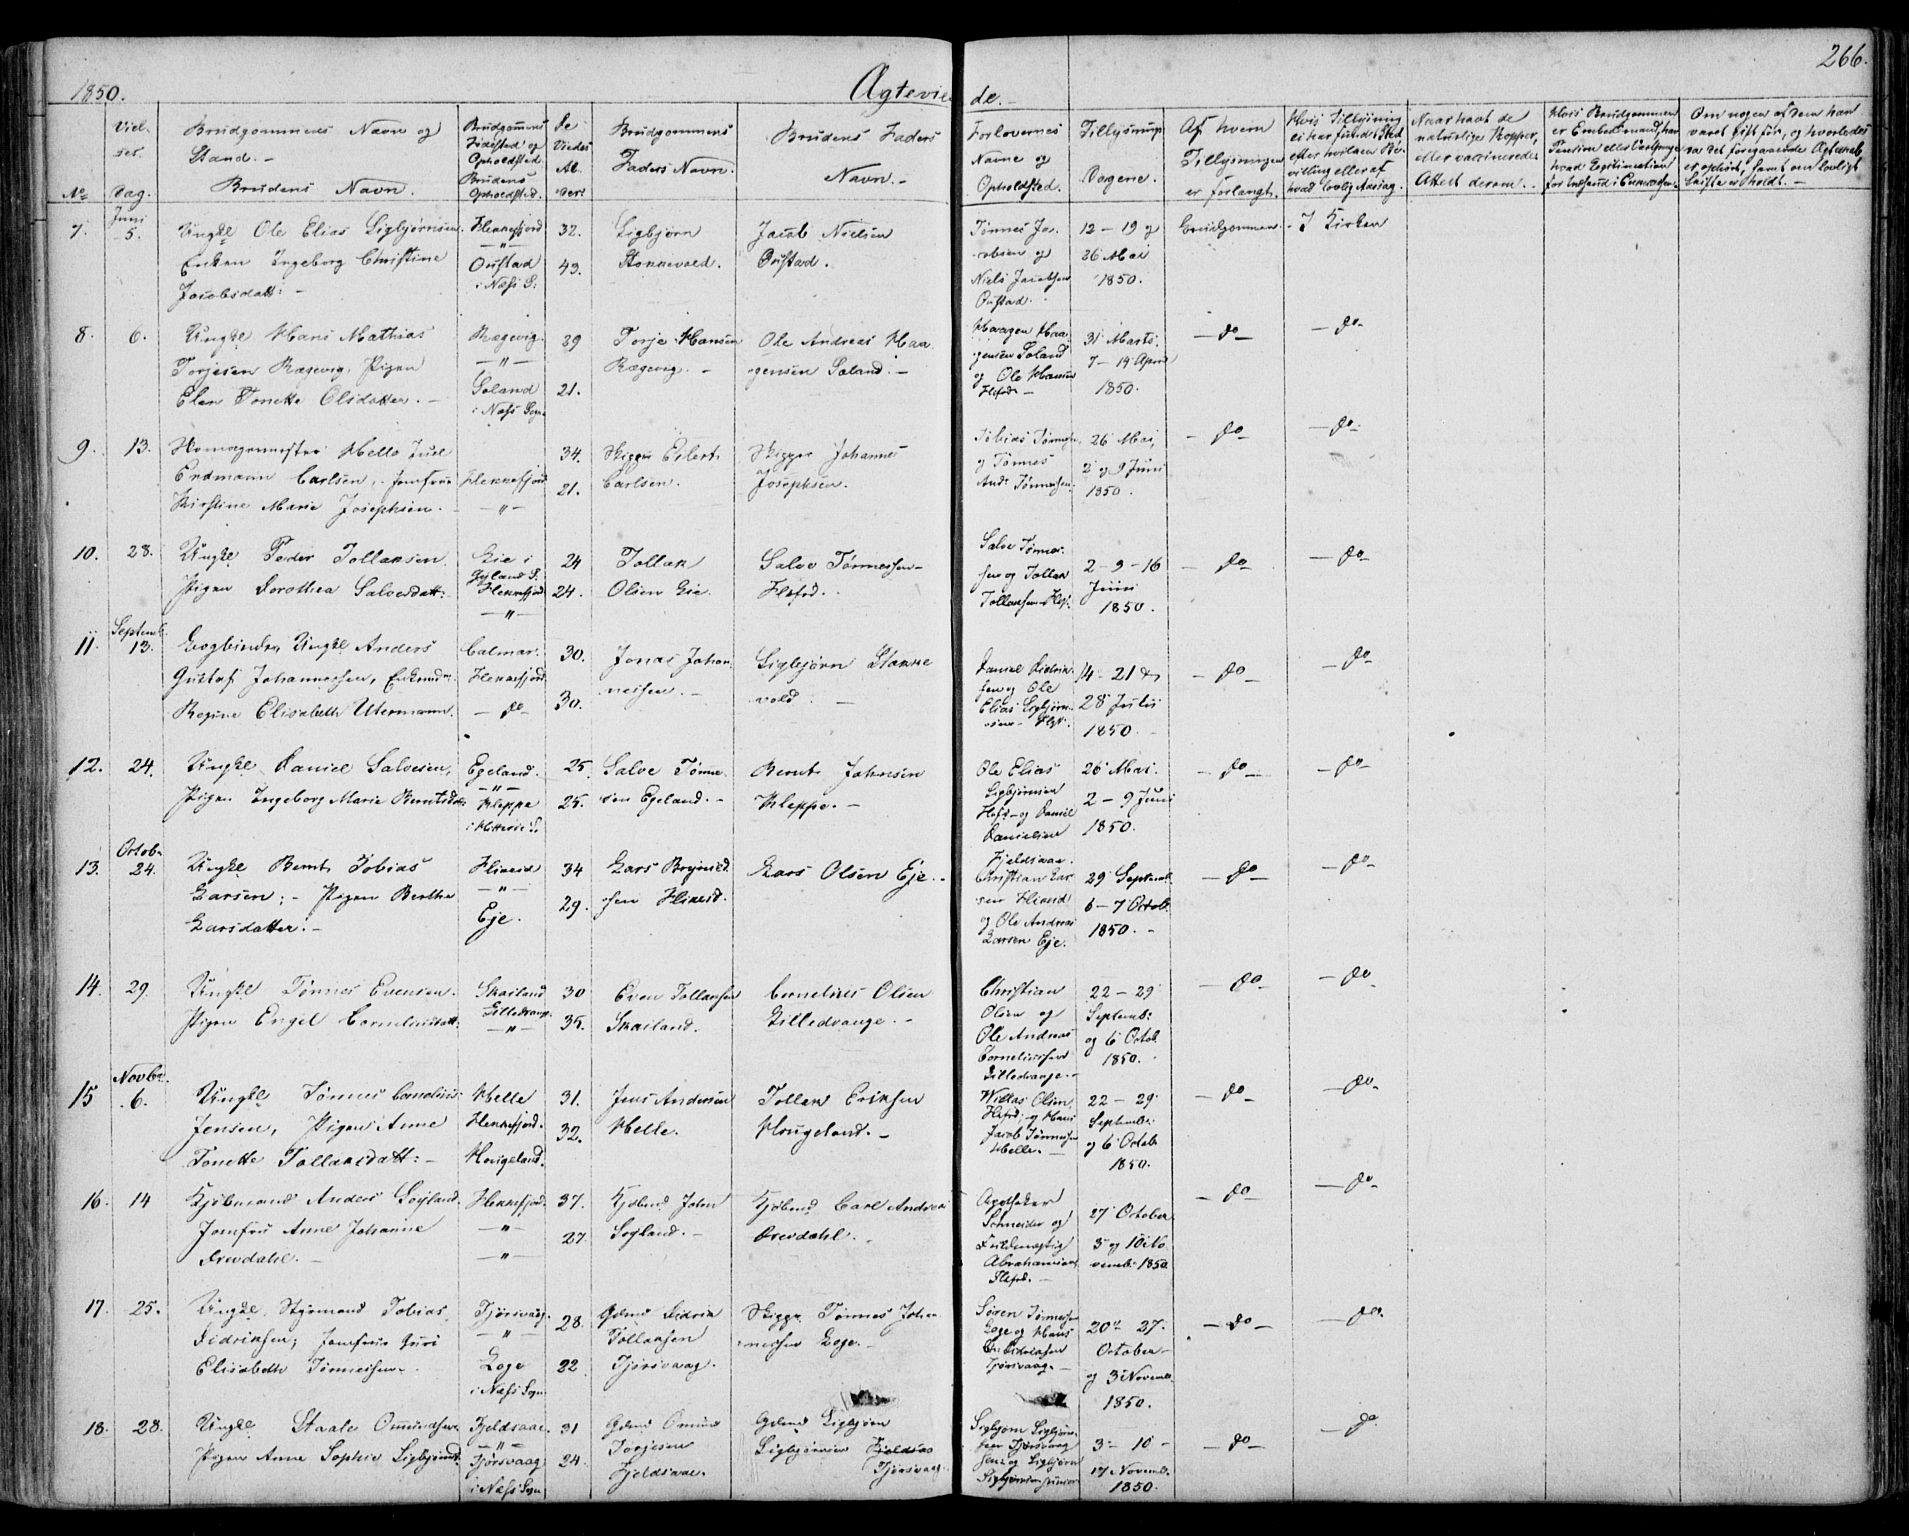 1850.
Ægteviede.
266.
No
Viel-
ses.
Dag.
Brudgommens Navn og
Stand. -
Brudens Navn.
Brudgommens
Fødested og
Opholdsted.
Brudens
Opholdsted.
De
Viedes
Al-
der.
Brudgommens
Faders Navn.
Brudens Faders
Navn. -
Forlovernes
Navne og
Opholdsted.
Tillysnings
Dagene.
Af hvem
Tillysningen
er forlangt.
Hvis Tillysning
ei har fundet Sted
efter hvilken Be-
villing eller af
hvad lovlig Aarsag.
Naar havt de
naturlige Kopper,
eller vaccinerede
Attest derom. -
Hvis Brudgommen
er Embedsmand, har
Pension
hvad Legitimation
Om nogen af dem har
været gift før, og hvorledes
det foregaaende Ægteskab
er ophørt, samt om lovligt
Skifte er holdt. -
7. Juni 5.
Ungkl Ole Elias Sigbjørnsen.
Enken Ingeborg Christine
Jacobsdatt: -
Flekkefjord
- " -
Oustad
i Næss S:
32.
43.
Sigbjørn
Stokkevold.
Jacob Nielsen
Oustad.
Tønnes Ja-
cobsen og
Niels Jacobsen
Oustad.
12 - 19 og
26 Mai
1850.
Brudgommen. -
I Kirken
8. 6.
Ungkl Hans Mathias
Torjesen Rægevig, Pigen
Elen Tonette Olsdatter. -
Rægevig.
- " -
Soland
i Næss Sogn
29
21.
Torje Hansen
Rægevig. -
Ole Andreas Haa-
gensen Soland. -
Haagen Haa-
gensen Soland
og Ole Hansen
Flefd. -
31 Marts.
7 - 14 April
1850.
- do -
- do -
9. 13.
Helle Juel
Erdmann Carlsen, Jomfrue
Kirstine Marie Josephsen. -
Flekkefjord
- " -
34.
21.
Skipper Eilert
Carlsen.
Skipper Johannes
Josephsen.
Tobias Tønnesen,
og Tønnes
Andr Tønnessen.
26 Mai,
2 og 9 Juni
1850.
- do -
- do -
10. 28.
Ungkl Peder Tollaksen
Pigen Dorothea Salvesdatt:
Eie i
Gyland S.
Flekkefjord
- " -
24
24.
Tollak
Olsen Eie.
Salve Tønnessen -
Flefd.
Salve Tønnes-
sen og Tollak
Tollaksen Flef.
2 - 9 - 16
Juni
1850.
- do -
- do -
11. Septemb. 13.
Bogbinder, Ungkl Anders
Gustaf Johannessen, Enkemd
Regine Elisabeth Utermann.
Calmar.
Flekkefjord
- do -
30.
30.
Jonas Johan-
nessen. -
Sigbjørn Stokke-
vold. -
Daniel Didrik-
sen og Ole
Elias Sigbjørn-
14 - 21 &
28 Julii
1850.
- do -
- do -
12. 24.
Ungkl Daniel Salvesen,
Pigen Ingeborg Marie Berntsdt
Egeland.
- " -
Kleppe
i Hitterøe S.
25.
25.
Salve Tønne-
sen Egeland. -
Bernt Johnsen
Kleppe. -
Ole Elias
Sigbjørnsen
Flefd - og Daniel
Danielsen
Fjeldsaae.
26 Mai.
2 - 9 Juni
1850.
- do -
- do -
13. Octob. 24.
Ungkl Bernt Tobias
Larsen; - Pigen Berthe
Larsdatter. -
Flikeid
- " -
Eje.
34
29.
Lars Brynild-
sen Flikeid.
Lars Olsen Eje. -
Christian Lar-
sen Flikeid
og Ole Andreas
Larsen Eje.
29 Septemb.
6 - 7 Octob:
1850. -
- do -
- do -
14. 29.
Ungkl Tønnes Evensen.
Pigen Engel Corneliusdatt:
Skailand
Lilledrange
- " -
30
35.
Even Tollaksen
Skailand.
Cornelius Olsen
Lilledrange. -
Christian
Olsen og
Ole Andreas
Corneliussen
Lilledrange. -
22 - 29
Septemb:
og 6 Octob
1850.
- do -
- do -
15 Novbr. 6.
Ungkl Tønnes Cornelius
Jensen, Pigen Anne
Tonette Tollaksdatt: -
Helle
Flekkefjord.
Hougeland.
31.
32.
Jens Andersen
Helle.
Tollak Eriksen
Hougeland. -
Willas Olsen
Flefd; og Hans
Jacob Tønnesen
Helle. -
22 - 29
Septemb:
og 6 Octob
1850.
- do -
- do -
16. 14
Kjøbmand Anders Søyland.
Jomfru Anne Johanne
Drevdahl. -
Flekkefjord.
- " -
- " -
37.
27.
Kjøbmd John
Søyland. -
Kjøbmd Carl Andreas
Drevdahl. -
Apotheker
Schneider og
Fuldmægtig
Abrahamsen
Flefd. -
27 October
3 og 10 No-
vemb: 1850.
- do -
- do -
17. 25.
Ungkl. Styrmand Tobias
Didriksen; Jomfrue Guri
Elisabeth Tønnessen.
Tjørsvaag.
- " -
Loge
i Næss Sogn
28.
22
Gdmd Didrik
Tollaksen
Tjørsvaag.
Skipper Tønnes Johan-
nessen Loge. -
Søren Tønnesen
Loge og Hans
Didriksen
Tjørsvaag. -
20 - 27.
October -
og 3 Novemb.
1850.
- do -
- do -
18. 28.
Ungkl Staale Omundsen
Pigen Anne Sophie Sigbjørnsd
Fjeldsaae.
- " -
Tjørsvaag
i Næss Sogn
31
24.
Gdmd Omund
Torjesen
Fjeldsaae.
Gdmd Sigbjørn
Sigbjørnsen Fjeldsaa
Tjørsvaag.
Sigbjørn Sigbjørn-
sen Tjørsvaag
sen: og Sigbjørn
Sigbjørnsen junior
3 - 10 -
17 Novemb.
1850.
- do -
- do